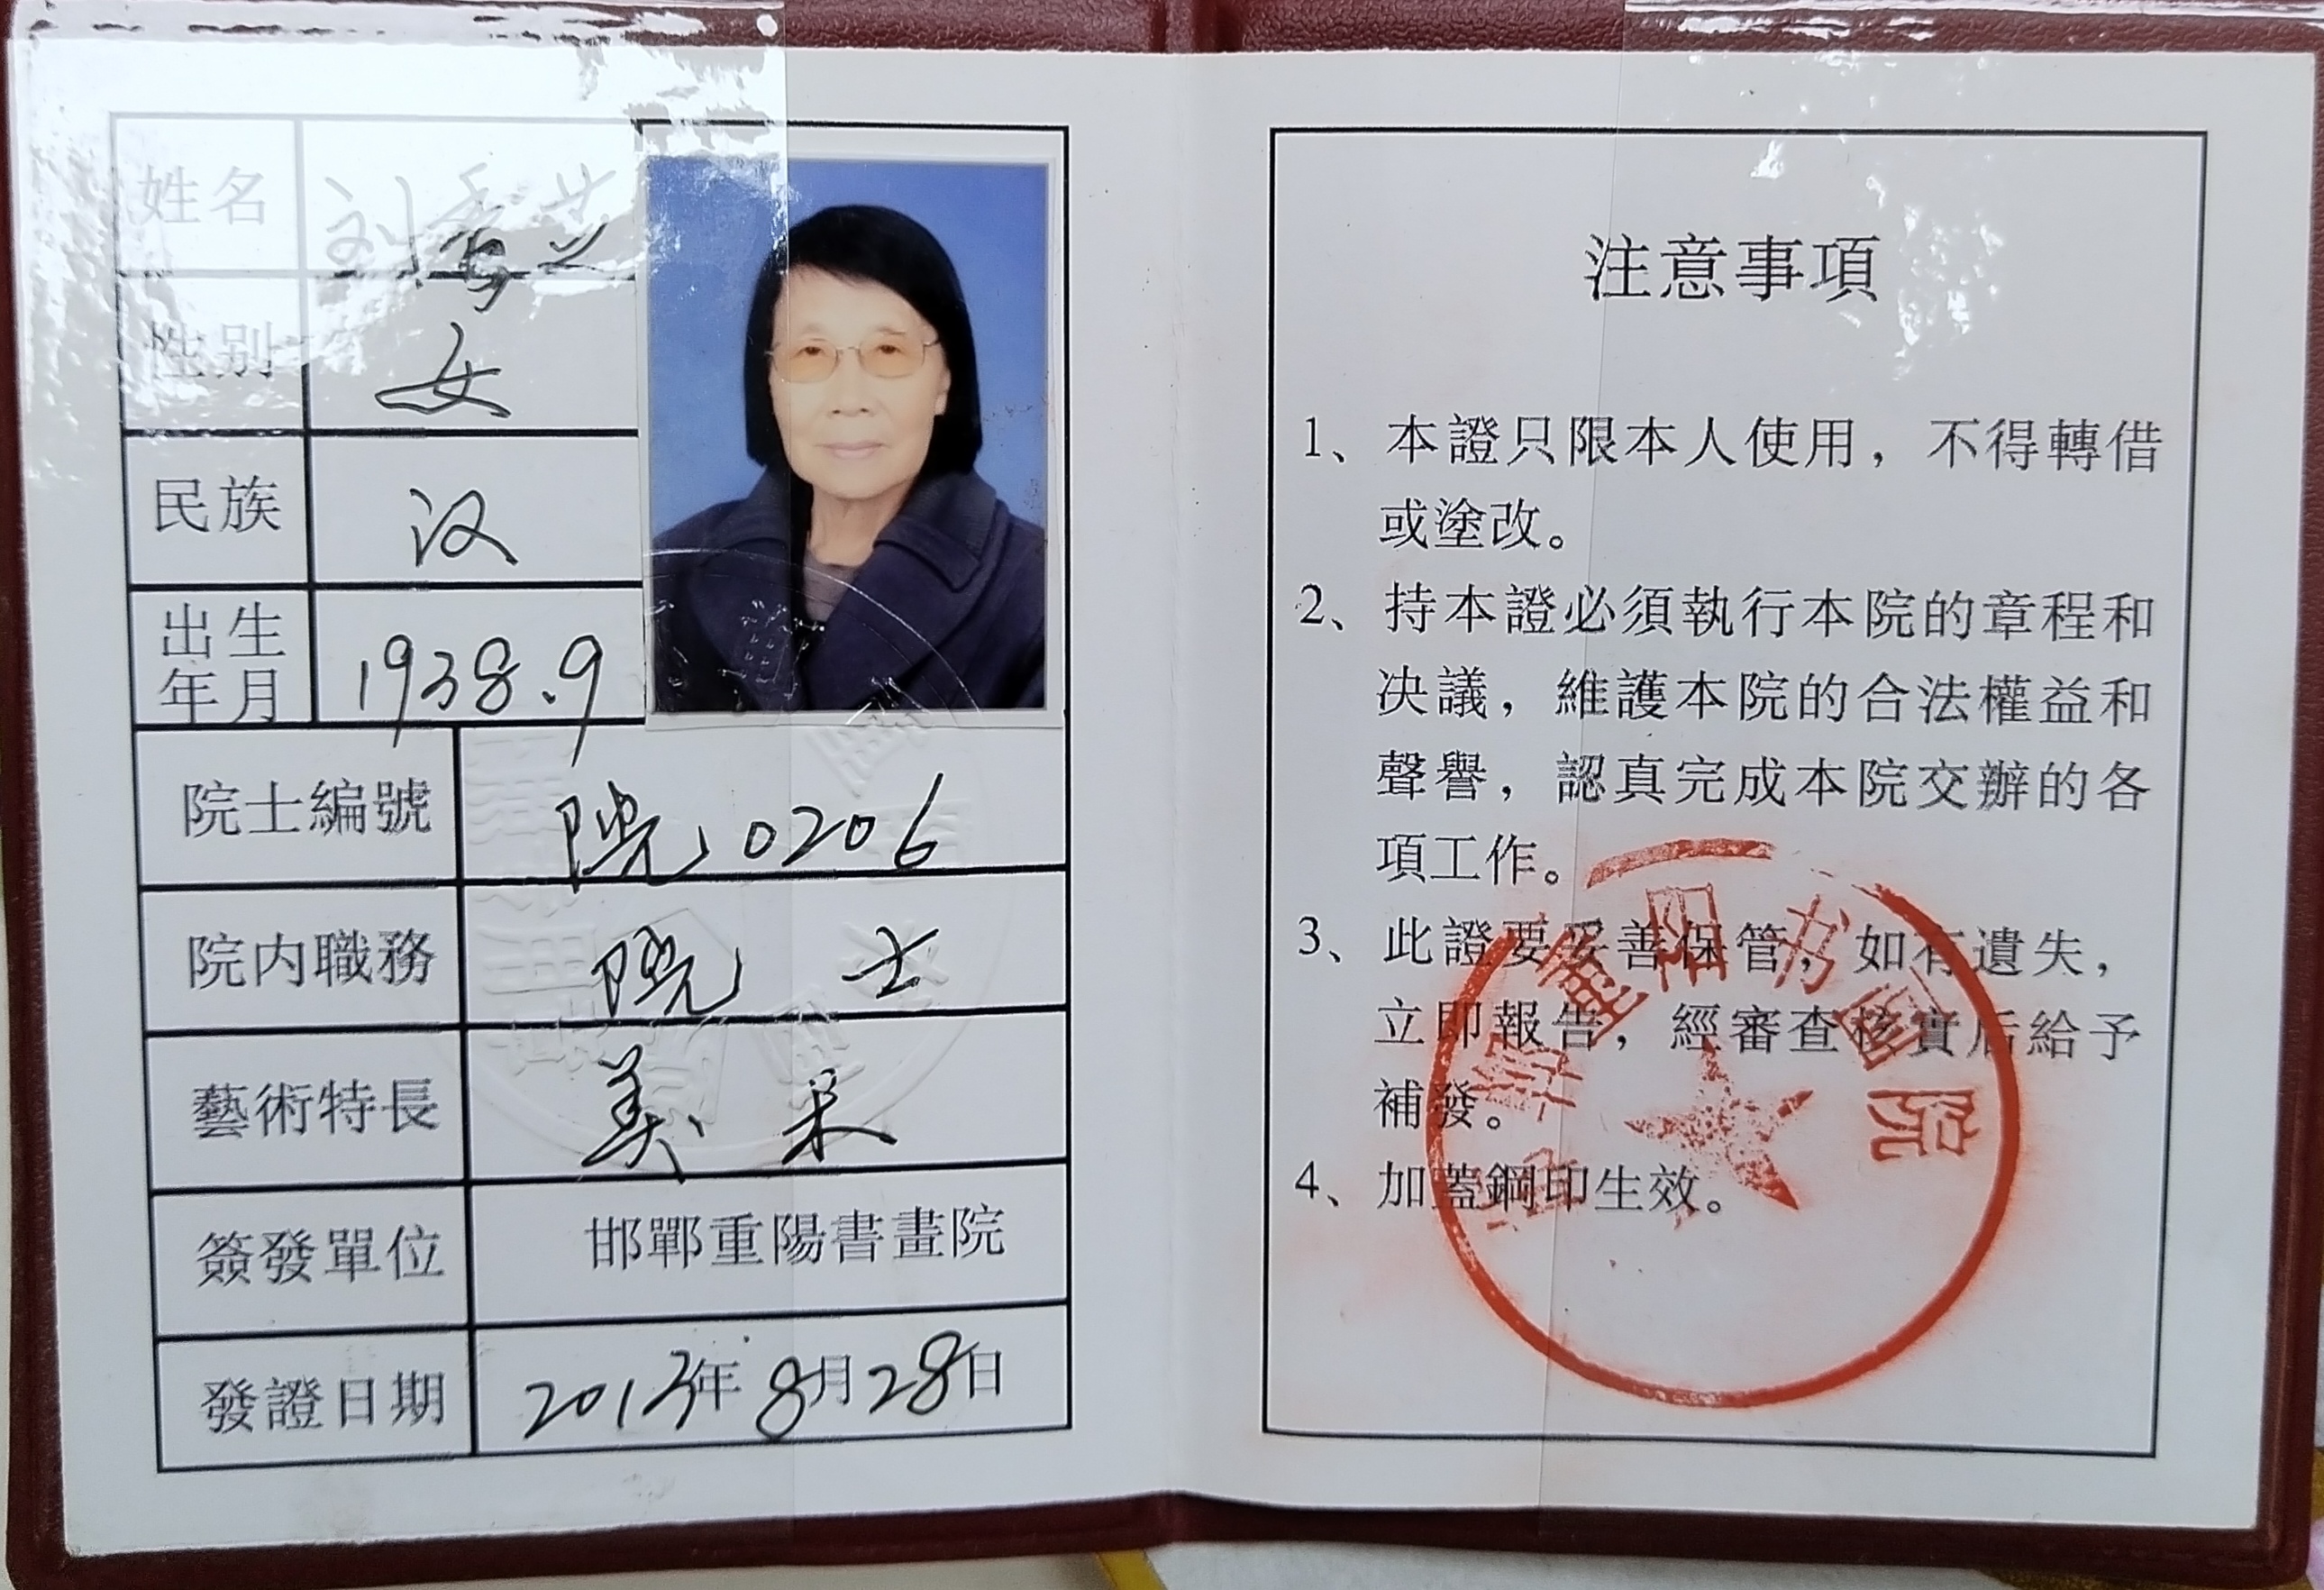 姓名 刘秀兰
性别 女
民族 汉
出生年月 1938.9
院士编號 院0206
院内職務 院士
藝術特長 美术
簽發單位 邯鄲重陽書畫院
發證日期 2013年8月28日
注意事項
1、本證只限本人使用，不得轉借
或塗改。
2、持本證必須執行本院的章程和
决議，維護本院的合法權益和
聲譽，認真完成本院交辦的各
項工作。
3、此證要妥善保管，如有遺失，
立即報告，經審查核實后給予
補發。
4、加蓋鋼印生效。